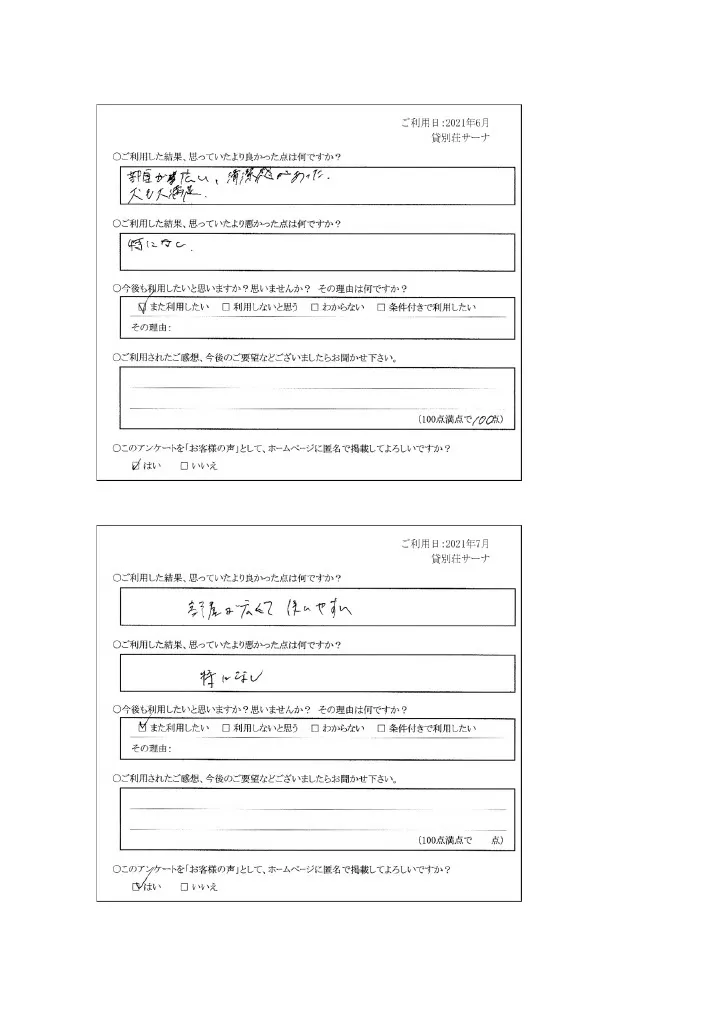 ご利用日:2021年6月
貸別荘サーナ
○ご利用した結果、思っていたより良かった点は何ですか?
部屋が広い、清潔感があった.
犬も大満足.
○ご利用した結果、思っていたより悪かった点は何ですか?
特になし.
○今後も利用したいと思いますか?思いませんか? その理由は何ですか?
☑ また利用したい □ 利用しないと思う □ わからない □ 条件付きで利用したい
その理由:
○ご利用されたご感想、今後のご要望などございましたらお聞かせ下さい。
(100点満点で100点)
○このアンケートを「お客様の声」として、ホームページに匿名で掲載してよろしいですか?
☑ はい □ いいえ
ご利用日:2021年7月
貸別荘サーナ
○ご利用した結果、思っていたより良かった点は何ですか?
部屋が広くて 使いやすい
○ご利用した結果、思っていたより悪かった点は何ですか?
特になし
○今後も利用したいと思いますか?思いませんか? その理由は何ですか?
☑ また利用したい □ 利用しないと思う □ わからない □ 条件付きで利用したい
その理由:
○ご利用されたご感想、今後のご要望などございましたらお聞かせ下さい。
(100点満点で 点)
○このアンケートを「お客様の声」として、ホームページに匿名で掲載してよろしいですか?
☑ はい □ いいえ